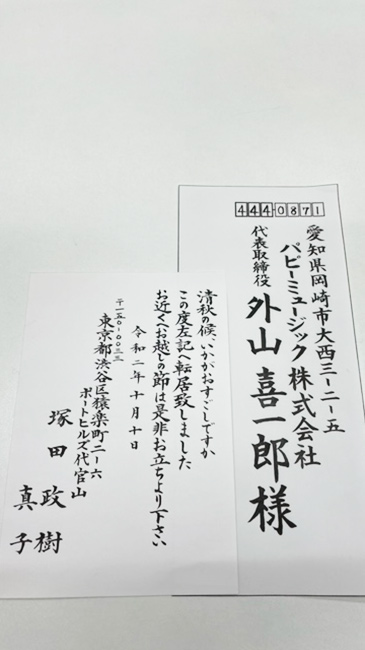 444-0871
愛知県岡崎市大西三ー二ー五
パピーミュージック株式会社
代表取締役
外山喜一郎様
清秋の候、いかがおすごしですか
この度左記へ転居致しました
お近くへお越しの節は是非お立ちより下さい
令和二年十月十日
〒一五〇-〇〇三三
東京都渋谷区猿楽町二ー六
ポートヒルズ代官山
塚田政樹
真子